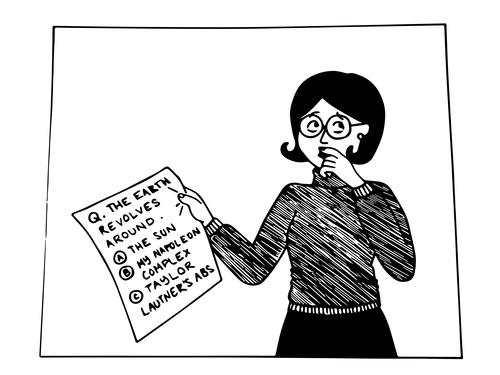 Q. THE EARTH
REVOLVES
AROUND.
A THE SUN
B MY NAPOLEON
COMPLEX
C TAYLOR
LAUTNER'S ABS